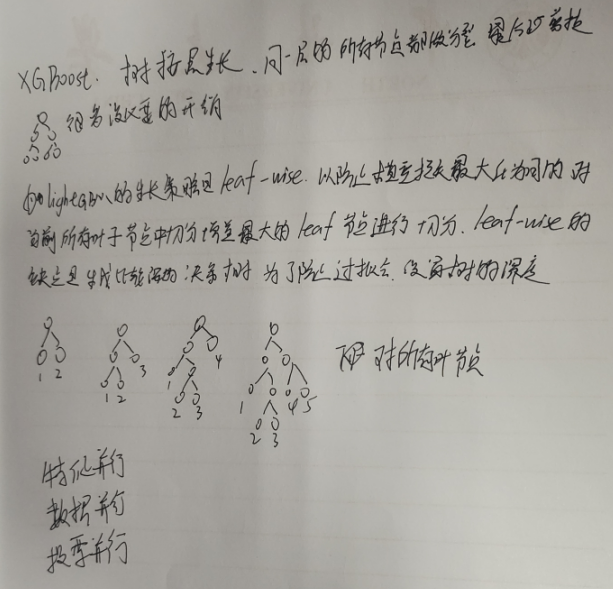 XGBoost. 树按层生长、同一层的所有节点都做分裂,最后剪枝
很多没必要的开销
lightGBM的生长策略是leaf-wise. 以降低模型损失最大化为目的,对
当前所有叶子节点中切分增益最大的leaf节点进行切分. leaf-wise的
缺点是生成比较深的决策树 为了防止过拟合. 设置树的深度
1 2 1 2 3 1 2 3 4 1 2 3 4 5 对所有叶节点
特征并行
数据并行
投票并行